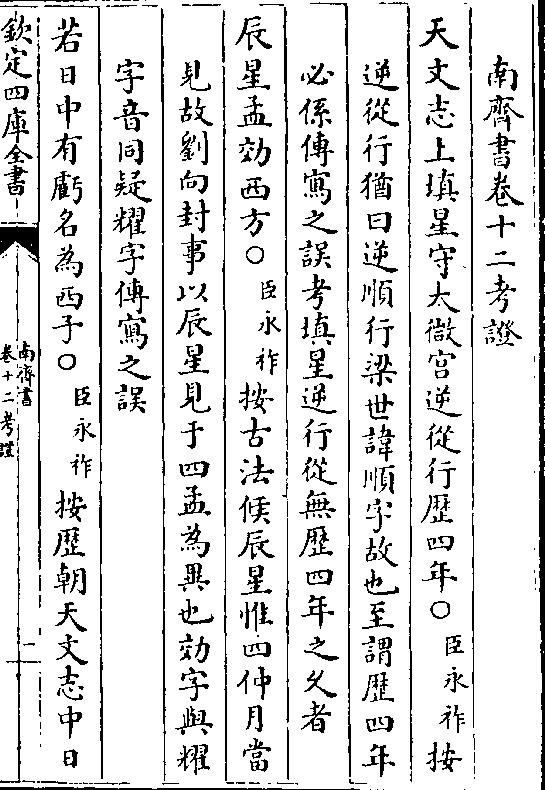 南齊書卷十二考證
天文志上填星守太微宫逆從行歴四年○臣永祚按
逆從行猶曰逆順行梁世諱順字故也至謂歴四年
必係傳寫之誤考填星逆行從無歴四年之久者
辰星孟効西方○臣永祚按古法候辰星惟四仲月當
見故劉向封事以辰星見于四孟為異也効字與耀
字音同疑耀字傳寫之誤
若日中有虧名為西子○臣永祚按歴朝天文志中日
欽定四庫全書
南齊書
卷十二考證
二